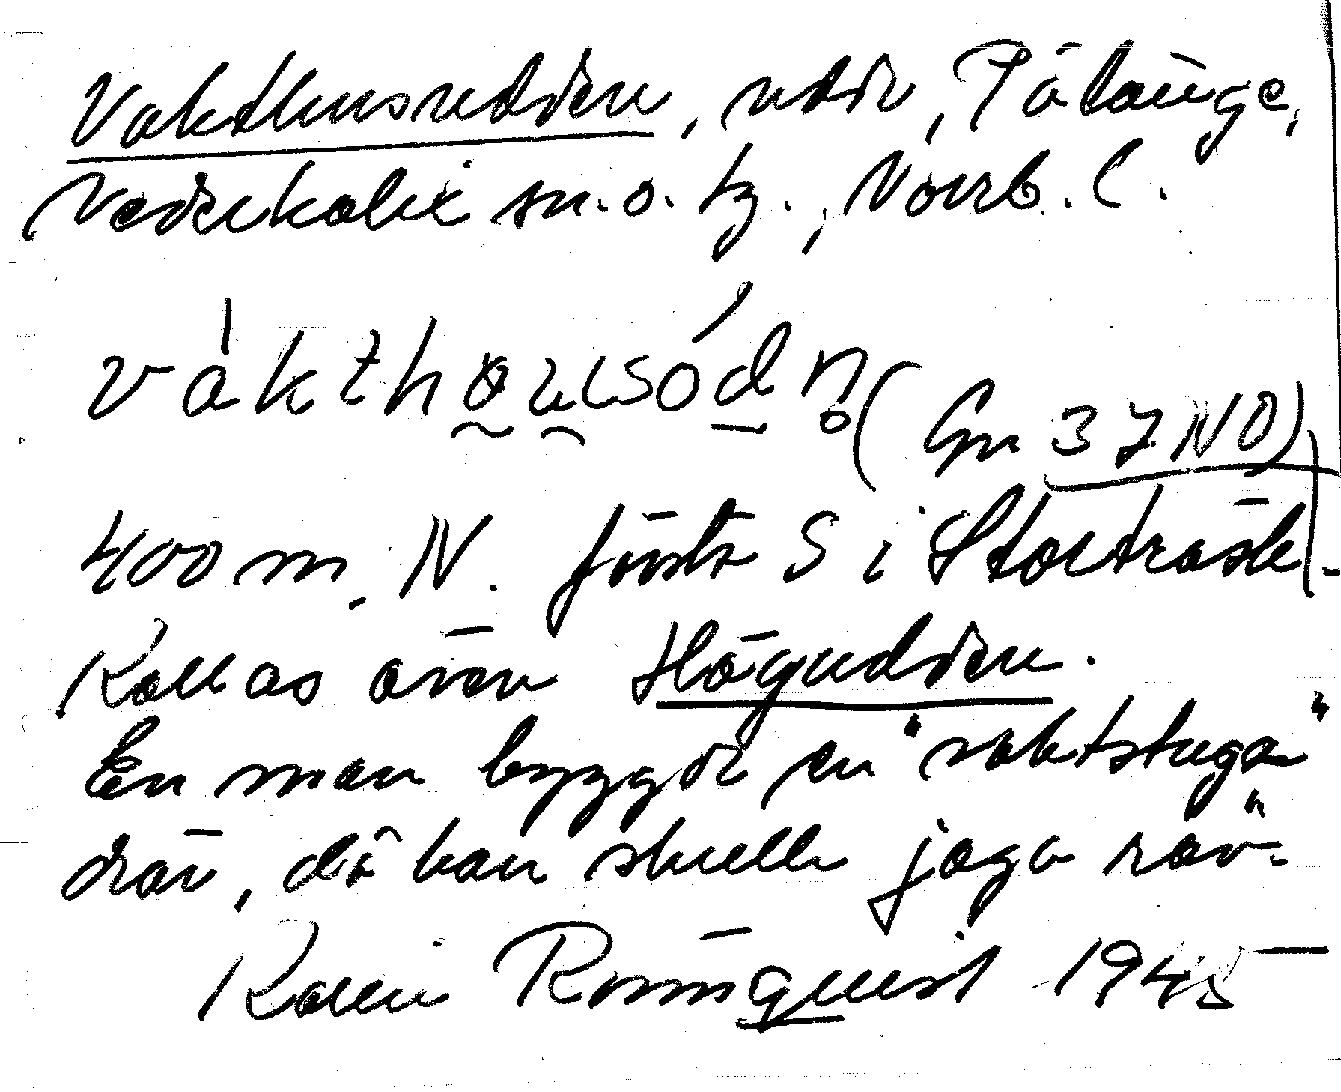 Vakthusudden, udde, Pålänge,
Nederkalix sn. o. tg., Norrb. l.
vákthou̯sódn̥ (Gn 37 NO)
400 m. N. första S i Storträsk-
Kallas även Högudden.
En man byggde en "vaktstuga"
där, då han skulle jaga räv.
Karin Rönnquist 1945